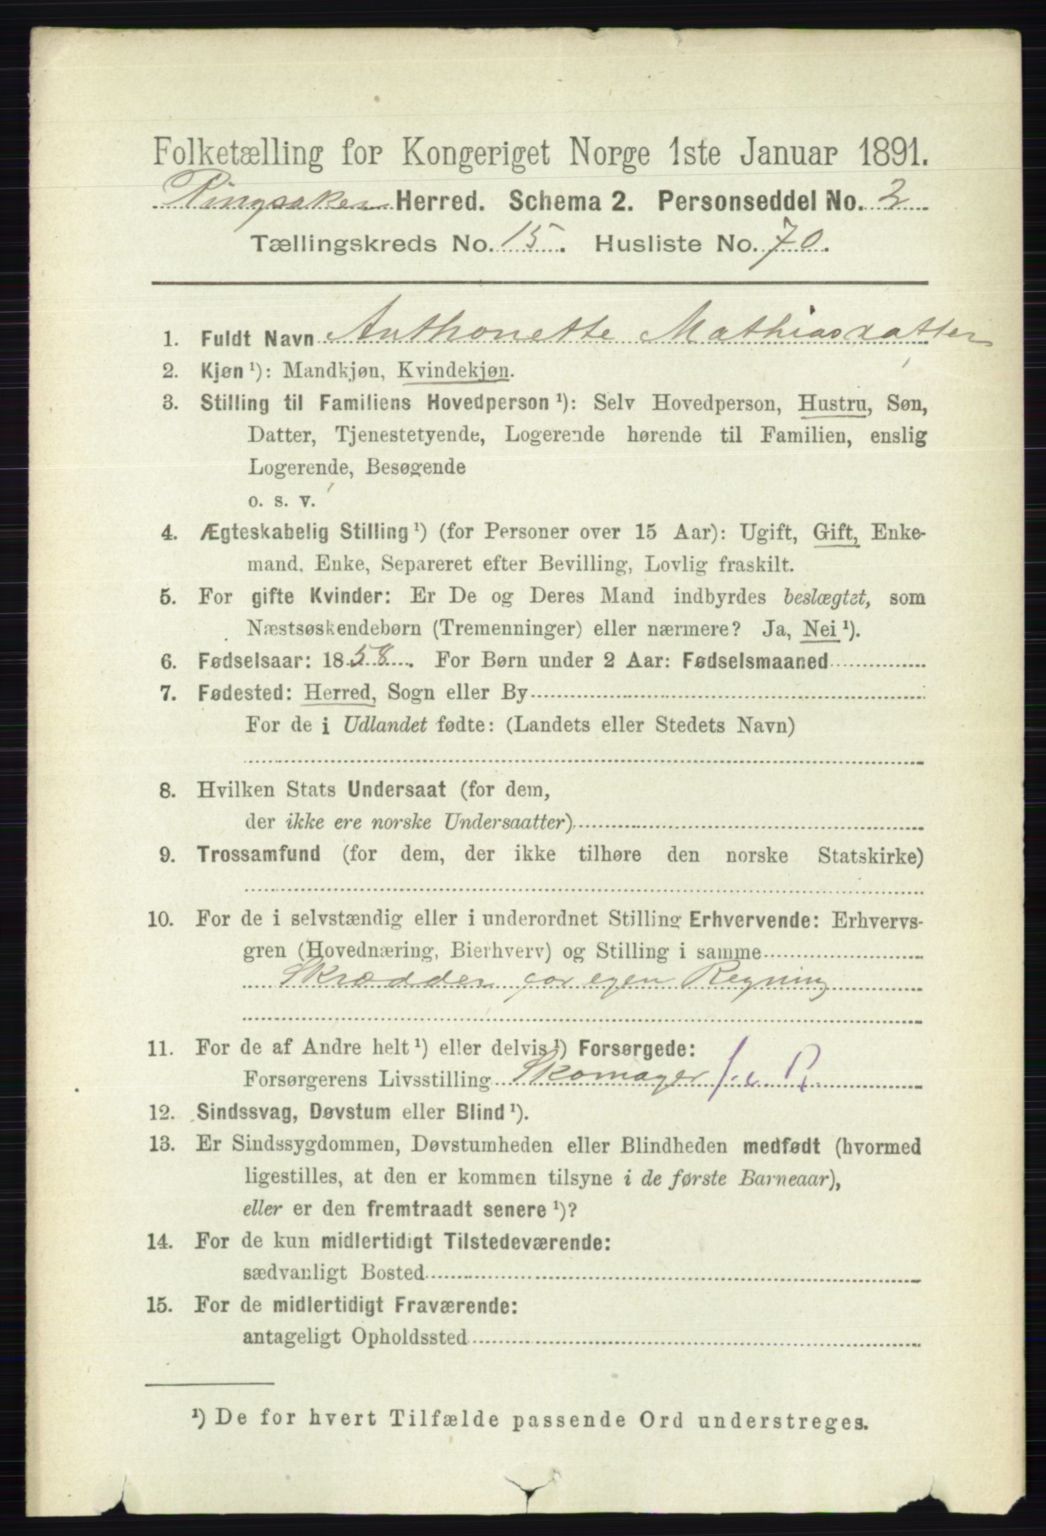 Folketælling for Kongeriget Norge 1ste Januar 1891.
Ringsaker Herred. Schema 2. Personseddel No. 2
Tællingskreds No. 15. Husliste No. 70.
1. Fuldt Navn Anthonette Mathiasdatter
2. Kjøn ¹): Mandkjøn, Kvindekjøn.
3. Stilling til Familiens Hovedperson ¹): Selv Hovedperson, Hustru, Søn,
Datter, Tjenestetyende, Logerende hørende til Familien, enslig
Logerende, Besøgende
o. s. v.
4. Ægteskabelig Stilling ¹) (for Personer over 15 Aar): Ugift, Gift, Enke-
mand, Enke, Separeret efter Bevilling, Lovlig fraskilt.
5. For gifte Kvinder: Er De og Deres Mand indbyrdes beslægtet, som
Næstsøskendebørn (Tremenninger) eller nærmere? Ja, Nei ¹).
6. Fødselsaar: 1858. For Børn under 2 Aar: Fødselsmaaned
7. Fødested: Herred, Sogn eller By
For de i Udlandet fødte: (Landets eller Stedets Navn)
8. Hvilken Stats Undersaat (for dem,
der ikke ere norske Undersaatter)
9. Trossamfund (for dem, der ikke tilhøre den norske Statskirke)
10. For de i selvstændig eller i underordnet Stilling Erhvervende: Erhvervs-
gren (Hovednæring, Bierhverv) og Stilling i samme
Skrædder for egen Regning
11. For de af Andre helt ¹) eller delvis ¹) Forsørgede:
Forsørgerens Livsstilling Skomager f. e. R.
12. Sindssvag, Døvstum eller Blind ¹).
13. Er Sindssygdommen, Døvstumheden eller Blindheden medfødt (hvormed
ligestilles, at den er kommen tilsyne i de første Barneaar),
eller er den fremtraadt senere ¹)?
14. For de kun midlertidigt Tilstedeværende:
sædvanligt Bosted
15. For de midlertidigt Fraværende:
antageligt Opholdssted
¹) De for hvert Tilfælde passende Ord understreges.